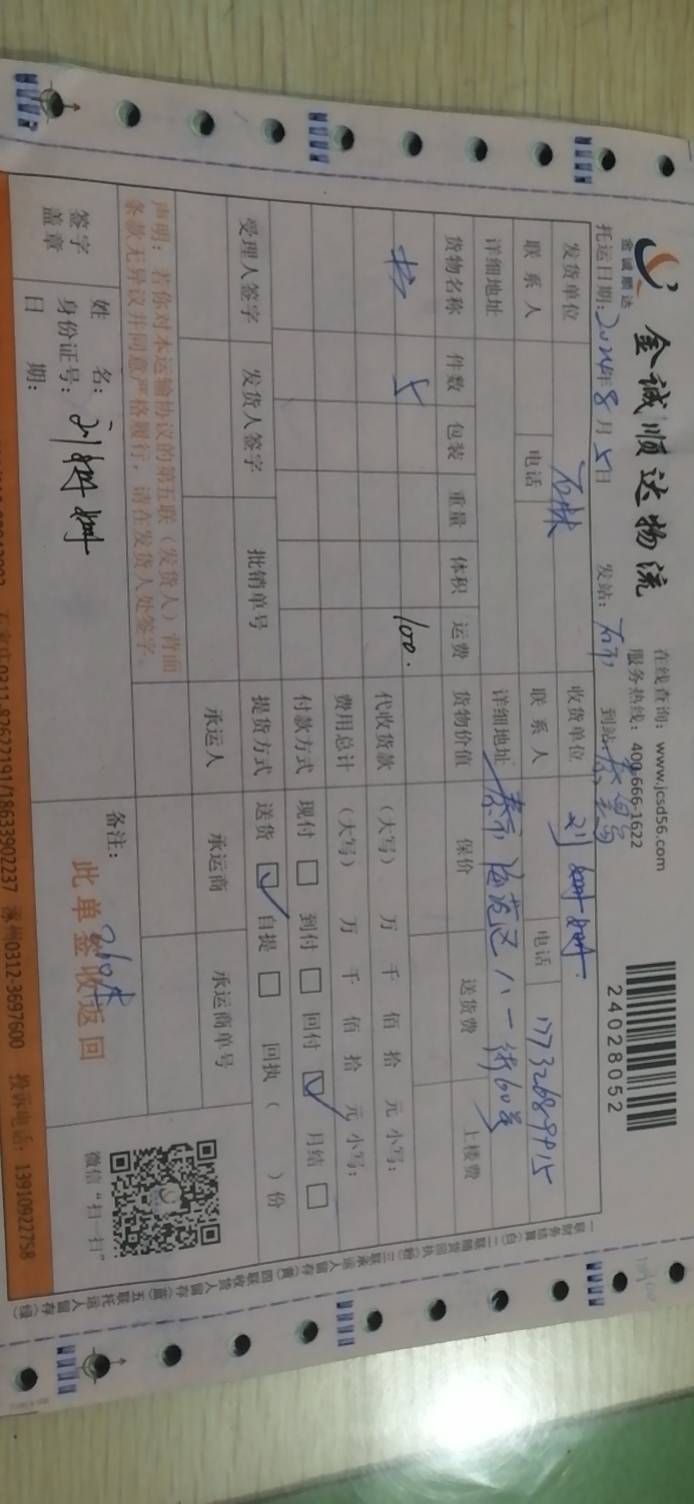 金诚顺达
金诚顺达物流
在线查询：www.jcsd56.com
服务热线：400-666-1622
24028052
托运日期：2024年8月5日 发站： 到站：秦皇岛
发货单位 收货单位 刘树树
联系人 电话 联系人 电话 17732689915
详细地址 详细地址 海港区八一街60号
货物名称 件数 包装 重量 体积 运费 货物价值 保价 送货费 上楼费
书 5 100.
代收货款 （大写） 万 千 佰 拾 元 小写：
费用总计 （大写） 万 千 佰 拾 元 小写：
付款方式 现付 □ 到付 □ 回付 ☑ 月结 □
受理人签字 发货人签字 批销单号 提货方式 送货 ☑ 自提 □ 回执（ ）份
承运人 承运商 承运商单号
声明：若你对本运输协议的第五联（发货人）背面
条款无异议并同意严格履行，请在发货人处签字。
签字
盖章
姓 名：
身份证号：
日 期：
刘树树
备注：
此单签收返回
微信“扫一扫”
石家庄0311-87627191/18633902237 涿州0312-3697600 投诉电话：13910922758
一联财务结算（白）二联随货回执（粉）三联承运人留存（黄）四联收货人留存（蓝）五联托运人留存（绿）